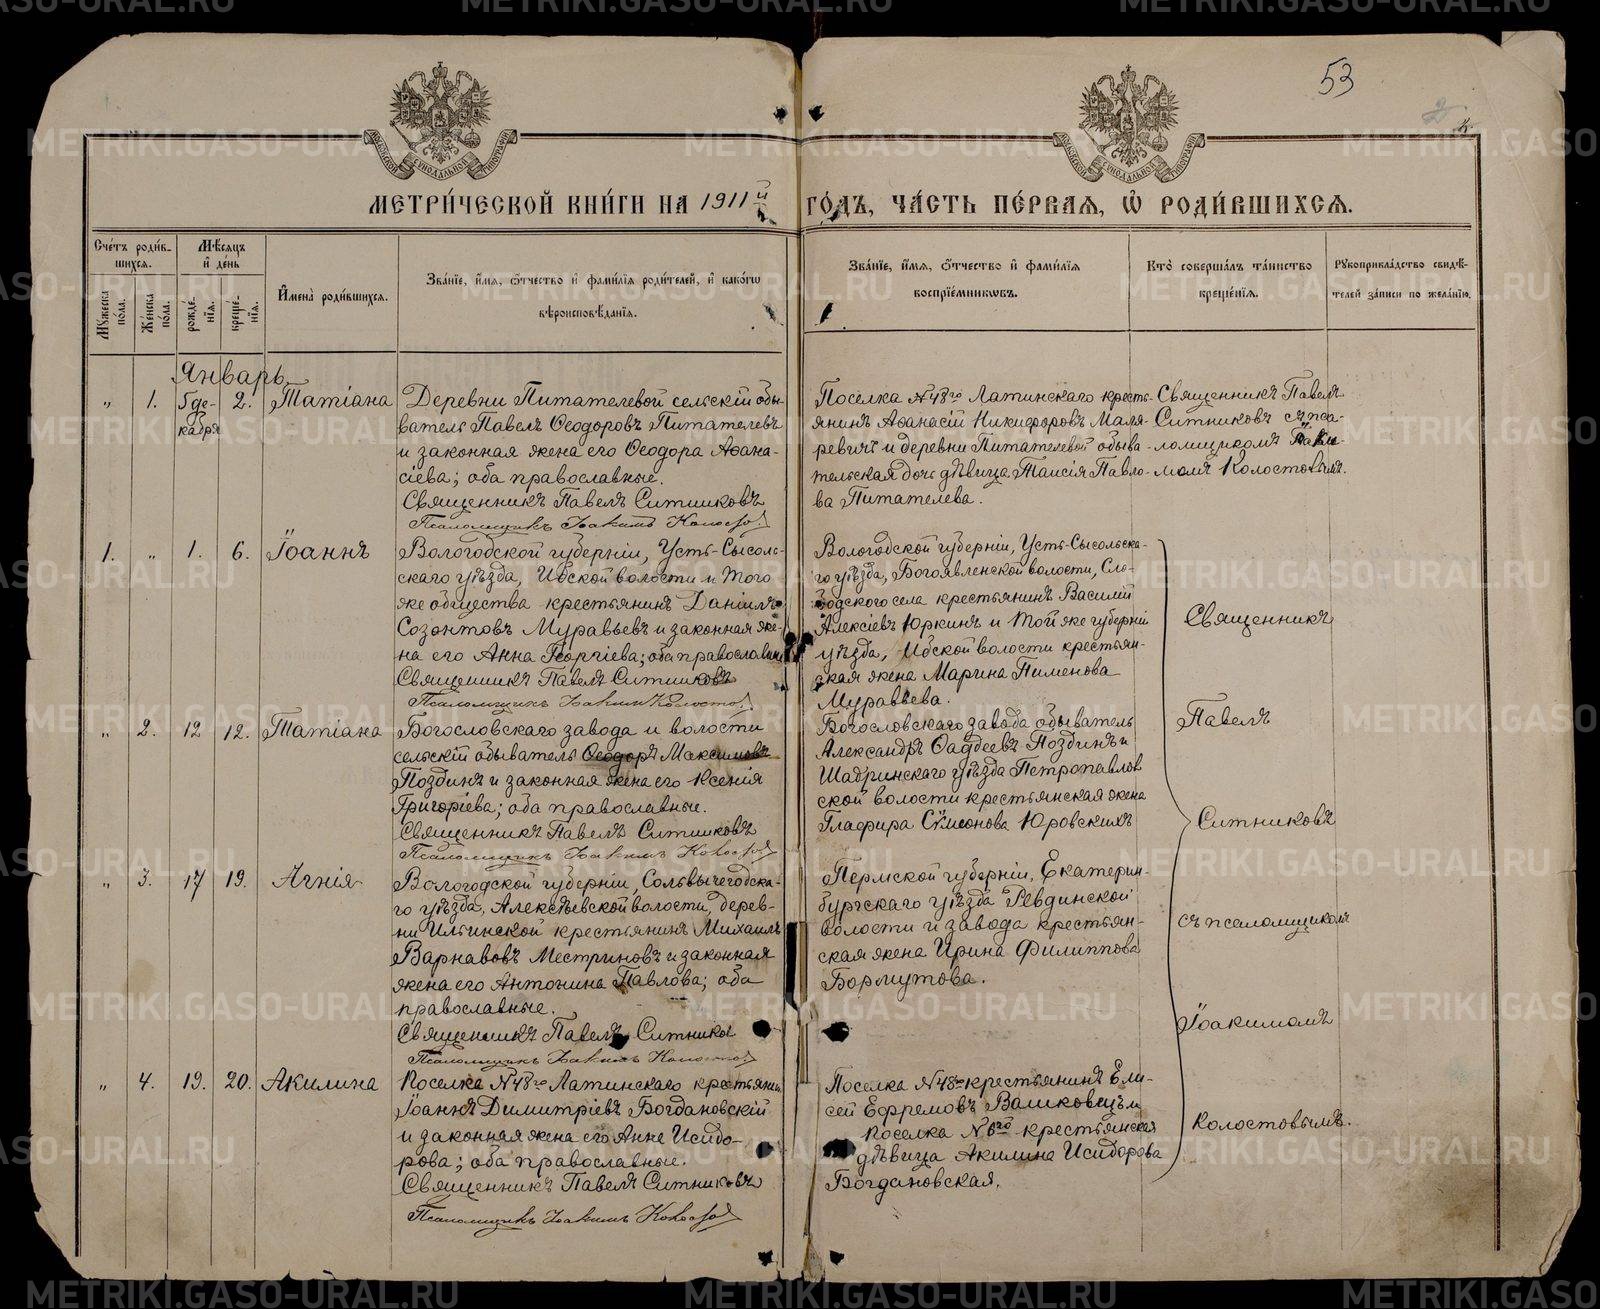 53
МОСКОВСКОЙ СУНОДАЛЬНОЙ ТИПОГРАФІИ
МОСКОВСКОЙ СУНОДАЛЬНОЙ ТИПОГРАФІИ
МЕТРИ́ЧЕСКОЙ КНИ́ГИ НА 1911й ГО́ДЪ, ЧА́СТЬ ПЕ́РВАЯ, Ѡ РОДИ́ВШИХСЯ.
Сче́тъ роди́в-
шихся.
Му́жеска по́ла.
Же́нска по́ла.
Мѣ́сяцъ
и де́нь
рожде́-
нія.
креще́-
нія.
Имена̀ роди́вшихся.
Зва́ніе, и́мя, ѻ҆́тчество и фами́лія роди́телей, и како́гѡ
вѣроисповѣ́данія.
Зва́ніе, и́мя, ѻ҆́тчество и фами́лія
воспріе́мниковъ.
Кто̀ соверша́лъ та́инство
креще́нія.
Рукоприкла́дство свидѣ́-
телей за́писи по жела́нію.
Январь.
„ 1. 5 де-
кабря 2. Татіана
Деревни Питателевой сельскій обы-
ватель Павелъ Ѳеодоровъ Питателевъ
и законная жена его Ѳеодора Аѳана-
сіева; оба православные.
Священникъ Павелъ Ситниковъ
Псаломщикъ Іоакимъ Колосто
Поселка №48го Латинскаго кресть-
янинъ Аѳанасій Никифоровъ Маля-
ревичъ и деревни Питателевой обыва-
тельская дочь дѣвица Таисія Павло-
ва Питателева.
Священникъ Павелъ
Ситниковъ съ пса-
ломщикомъ
Колостовымъ.
1. „ 1. 6. Іоаннъ
Вологодской губерніи, Усть-Сысоль-
скаго уѣзда, Ибской волости и того
же общества крестьянинъ Даніилъ
Созонтовъ Муравьевъ и законная же-
на его Анна Георгіева; оба православные
Священникъ Павелъ Ситниковъ
Псаломщикъ Іоакимъ Колосто
Вологодской губерніи, Усть-Сысольска-
го уѣзда, Богоявленской волости, Сло-
бодского села крестьянинъ Василій
Алексіевъ Юркинъ и той же губерніи
уѣзда, Ибской волости крестьян-
ская жена Марина Пименова
Муравьева.
„ 2. 12 12. Татіана
Богословскаго завода и волости
сельскій обыватель Ѳеодоръ Максимовъ
Поздинъ и законная жена его Ксенія
Григоріева; оба православные.
Священникъ Павелъ Ситниковъ
Псаломщикъ Іоакимъ Колосто
Богословскаго завода обыватель
Александръ Ѳаддеевъ Поздинъ и
Шадринскаго уѣзда Петропавлов
ской волости крестьянская жена
Глафира Сѵмеонова Юровскихъ
„ 3. 17 19. Агнія
Вологодской губерніи, Сольвычегодска-
го уѣзда, Алексѣевской волости, дерев-
ни Ильинской крестьянинъ Михаилъ
Варнавовъ Местриновъ и законная
жена его Антонина Павлова; оба
православные.
Священникъ Павелъ Ситников
Псаломщикъ Іоакимъ Колосто
Пермской губерніи, Екатерин-
бургскаго уѣзда Ревдинской
волости и завода крестьян-
ская жена Ирина Филиппова
Бормутова.
„ 4. 19. 20. Акилина
Поселка №48го Латинскаго крестьянин
Іоаннъ Димитріевъ Богдановскій
и законная жена его Анне Исидо-
рова; оба православные.
Священникъ Павелъ Ситниковъ
Псаломщикъ Іоакимъ Колосто
Поселка №48го крестьянинъ Ели-
сей Ефремовъ Вашковецъ и
поселка №6го крестьянская
дѣвица Акилина Исидорова
Богдановская.
Священникъ
Павелъ
Ситниковъ
съ псаломщикомъ
Іоакимомъ
Колостовымъ.
METRIKI.GASO-URAL.RU